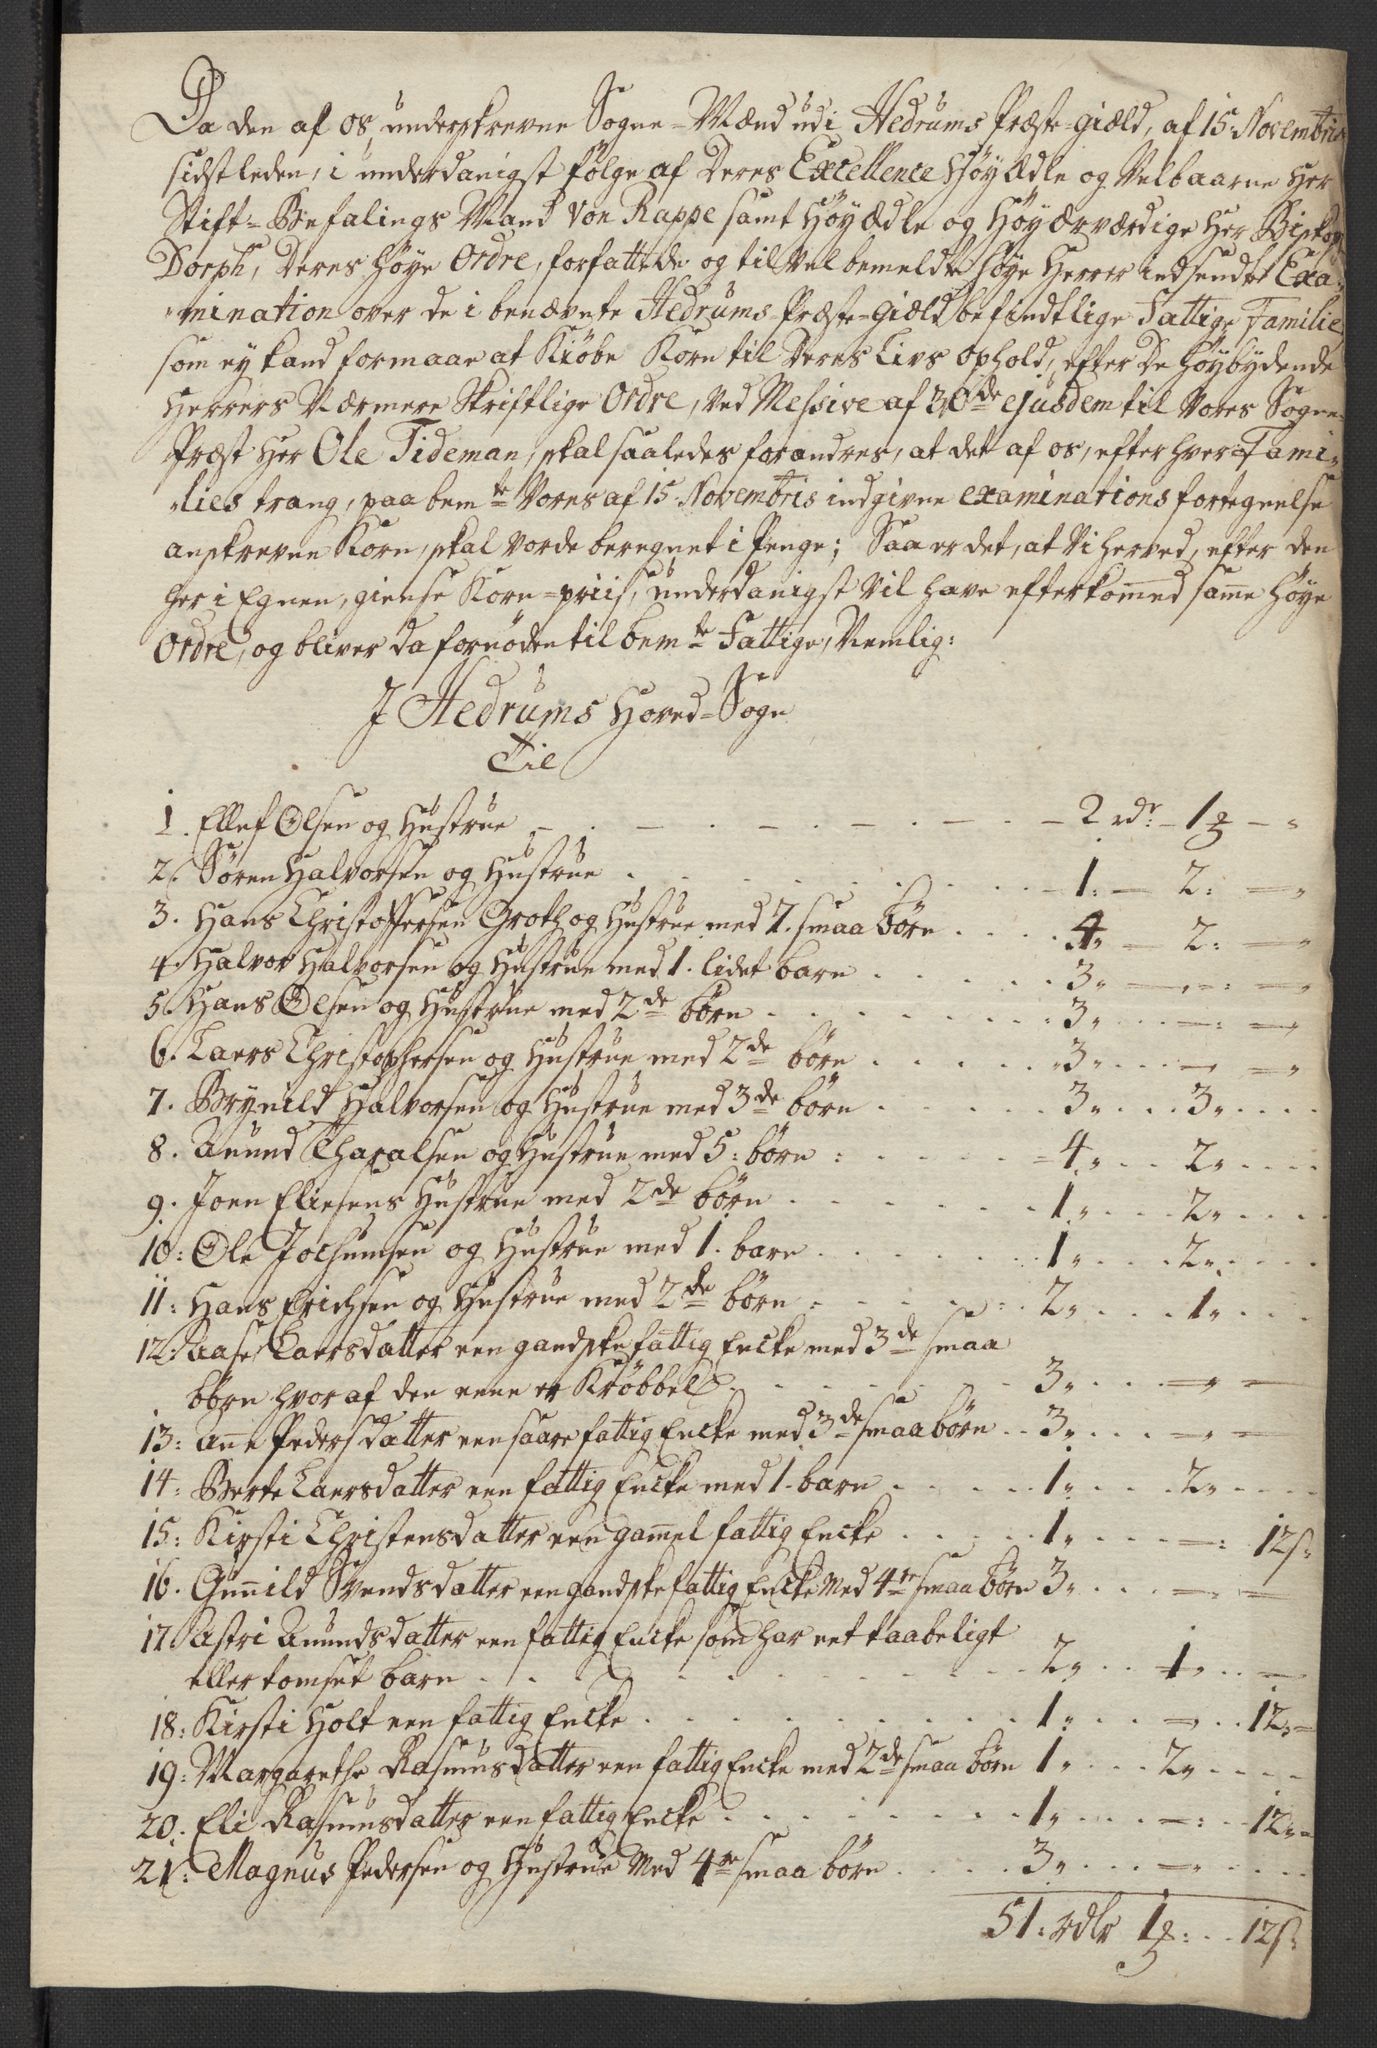 Da den af os underskrevne Sogne-Mænd udi Hedrums Præste-giæld, af 15 Novembris
sidstleden, i underdanigst følge af Deres Excellence Høy Ædle og Velbaarne Her
Stift-Befalings Mand Von Rappe samt Høyædle og Høyærværdige Her Biskop
Dorph, Deres høye Ordre, forfattede og til Velbemeldte høye Herrer indsendte Exa-
mination over de i benævnte Hedrums-Præste-Giæld befindtlige Fattige Familie
som ey kand formaae at Kiöbe Korn til Deres Livs Ophold, efter De høybydende
Herrers Nærmere Skriftlige Ordre, Ved Messive af 30de ejusdem til Vores Sogne
Præst Her Ole Tideman, skal saaledes forandres, at det af os, efter hver Fami-
lies trang, paa bemte Vores af 15 Novembris indgivne examinations fortegnelse
anskrevne Korn, skal vorde beregnet i Penge; Saa er det, at Vi herved, efter den
her i Egnen, giense Korn-priis, underdanigst Vil have efterkommed samme høye
Ordre, og bliver da fornøden til bemte Fattige, Nemlig:
J Hedrums Hoved-Sogn
Til
1. Ellef Olsen og Hustrue - 2 rdr: 1
2. Søren Halvorsen og Hustrue 1: 2:
3. Hans Christoffersen Groth og Hustrue med 7. smaa børn 4. 2:
4. Halvor Halvorsen og Hustrue med 1. lidet barn 3.
5. Hans Olsen og Hustrue med 2de børn 3.
6. Laers Christophersen og Hustrue med 2de børn 3.
7. Brynild Halvorsen og Hustrue med 3de børn 3. 3.
8. Anund Tharalsen og Hustrue med 5: børn 4. 2.
9. Joen Eliesens Hustrue med 2de børn 1. 2.
10: Ole Jochumsen og Hustrue med 1. barn 1. 2.
11: Hans Erichsen og Hustrue med 2de børn 2. 1.
12. Aase Laersdatter een gandske fattig Encke med 3de smaa
børn hvor af den eene er Krøbbel 3.
13: Anne Pedersdatter een saare fattig Encke med 3de smaa børn 3.
14: Berte Laersdatter een fattig Encke med 1. barn 1. 2.
15: Kirsti Christensdatter een gammel fattig Encke 1. 12s:
16. Gunnild Svendsdatter een gandske fattig Encke Med 4re smaa børn 3.
17. Astri Anundsdatter een fattig Encke som har eet taabeligt
eller tomset barn 2. 1.
18: Kirsti Holt een fattig Encke 1. 12.
19: Margarethe Rasmusdatter een fattig Encke med 2de smaa børn 1. 2.
20. Eli Rasmusdatter een fattig Encke 1. 12.
21: Magnus Pedersen og Hustrue Med 4re smaa børn 3.
51: rdlr 1: 12s: